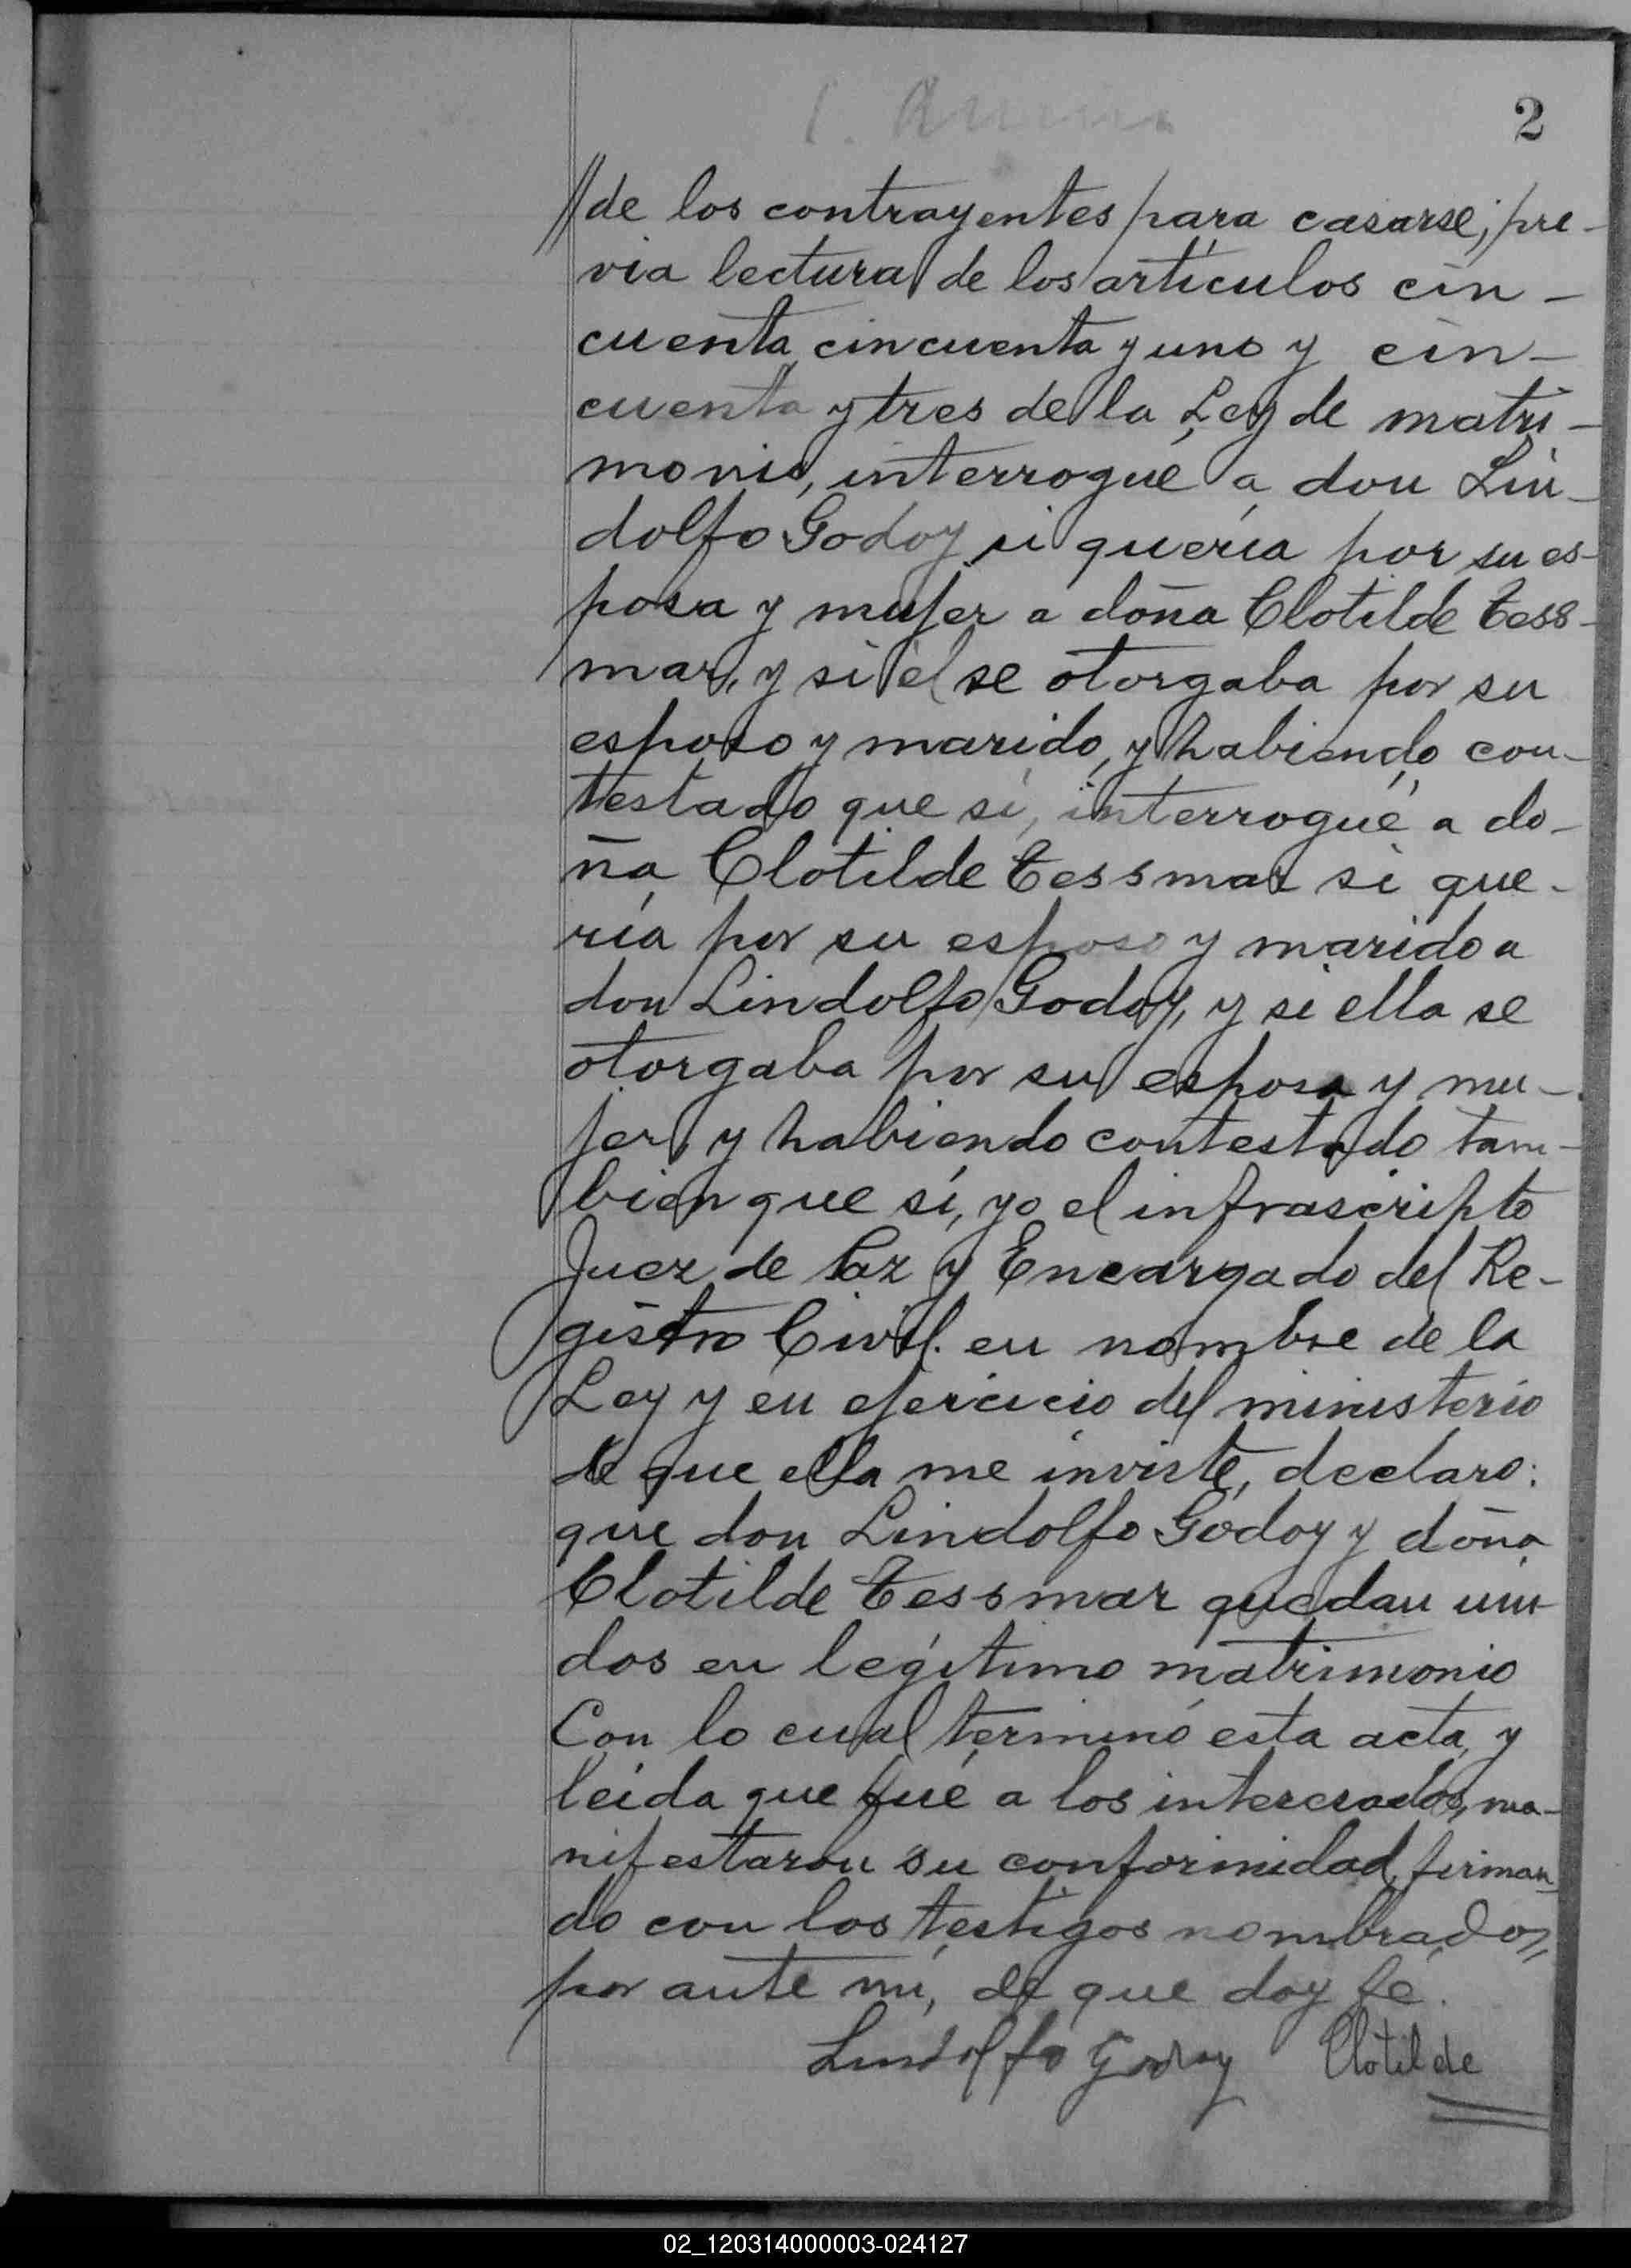 2
// de los contrayentes para casarse; pre-
via lectura de los artículos cin-
cuenta cincuenta y uno y cin-
cuenta y tres de la Ley de matri-
monio, interrogué a don Lin-
dolfo Godoy si quería por su es-
posa y mujer a doña Clotilde Tess-
mar, y si él se otorgaba por su
esposo y marido, y habiendo con-
testado que sí, interrogué a do-
ña Clotilde Tessmar si que-
ría por su esposo y marido a
don Lindolfo Godoy, y si ella se
otorgaba por su esposa y mu-
jer, y habiendo contestado tam-
bien que sí, yo el infrascripto
Juez de Paz y Encargado del Re-
gistro Civil. en nombre de la
Ley y en ejercicio del ministerio
de que ella me inviste, declaro:
que don Lindolfo Godoy y doña
Clotilde Tessmar quedan uni-
dos en legítimo matrimonio
Con lo cual terminó esta acta, y
leída que fué a los interesados, ma-
nifestaron su conformidad, firman-
do con los testigos nombrados,
por ante mí, de que doy fe.
Lindolfo Godoy Clotilde
02_120314000003-024127